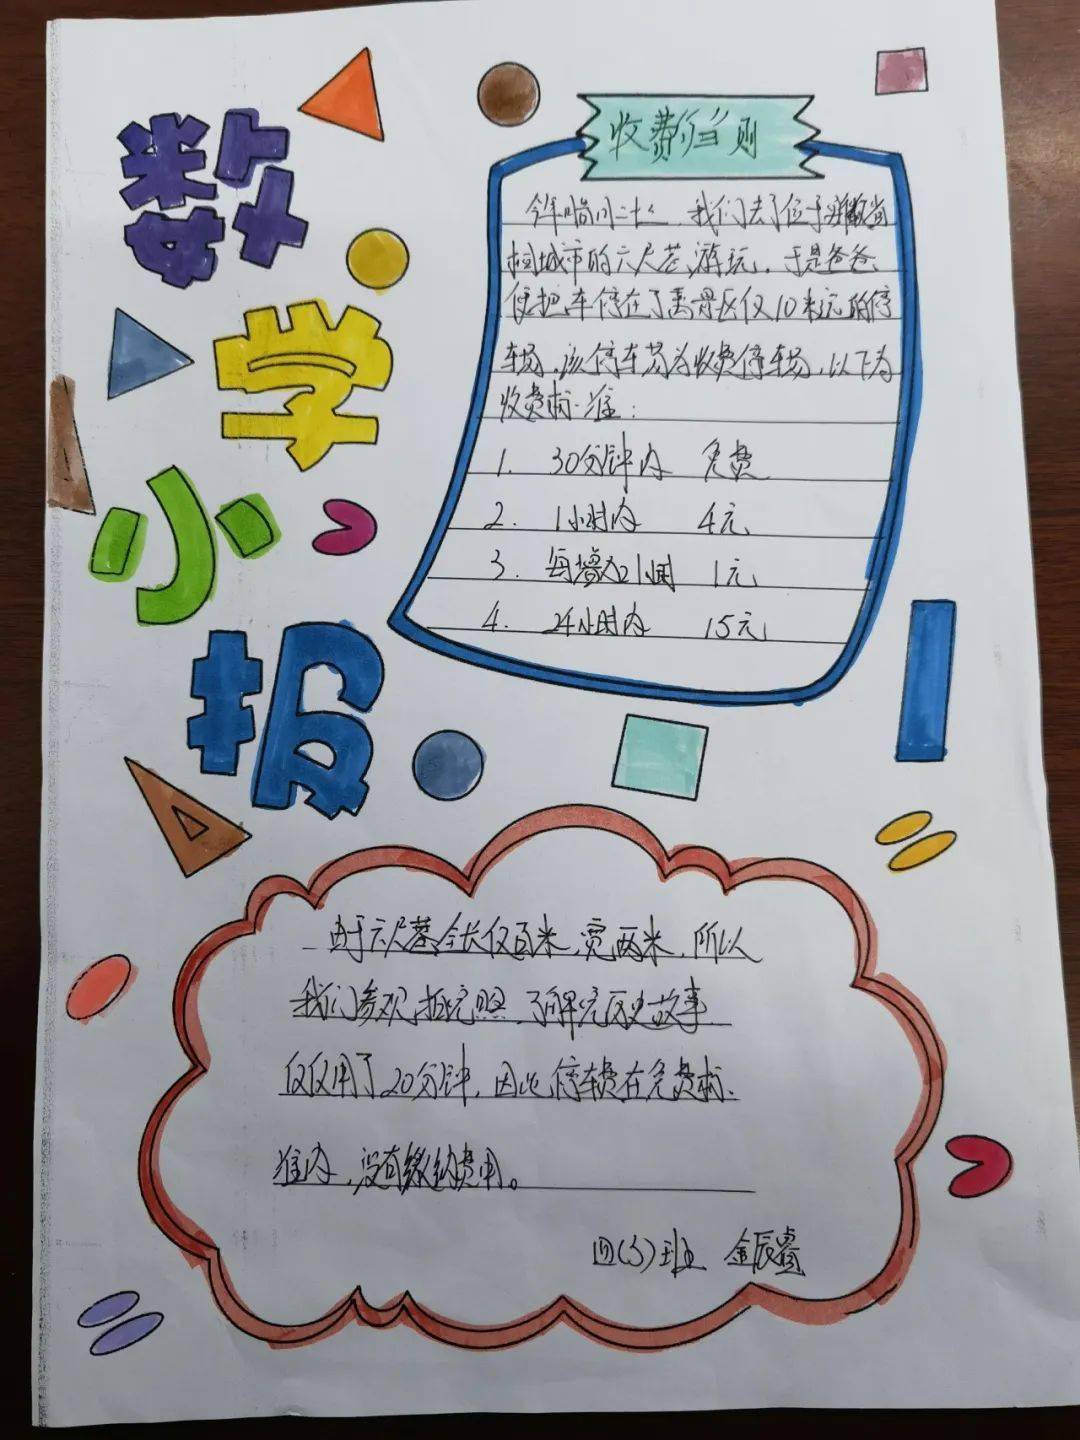 数学小报
收费归则
今年腊月二十七，我们去了位于安徽省
桐城市的六尺巷游玩，于是爸爸
便把车停在了离景区仅10米远的停
车场，该停车场为收费停车场，以下为
收费标准：
1. 30分钟内 免费
2. 1小时内 4元
3. 每增加1小时 1元
4. 24小时内 15元
由于六尺巷全长仅百米，宽两米，所以
我们参观，拍完照，了解完历史故事
仅仅用了20分钟，因此停车费在免费标
准内，没有缴纳费用。
四(3)班 金辰睿